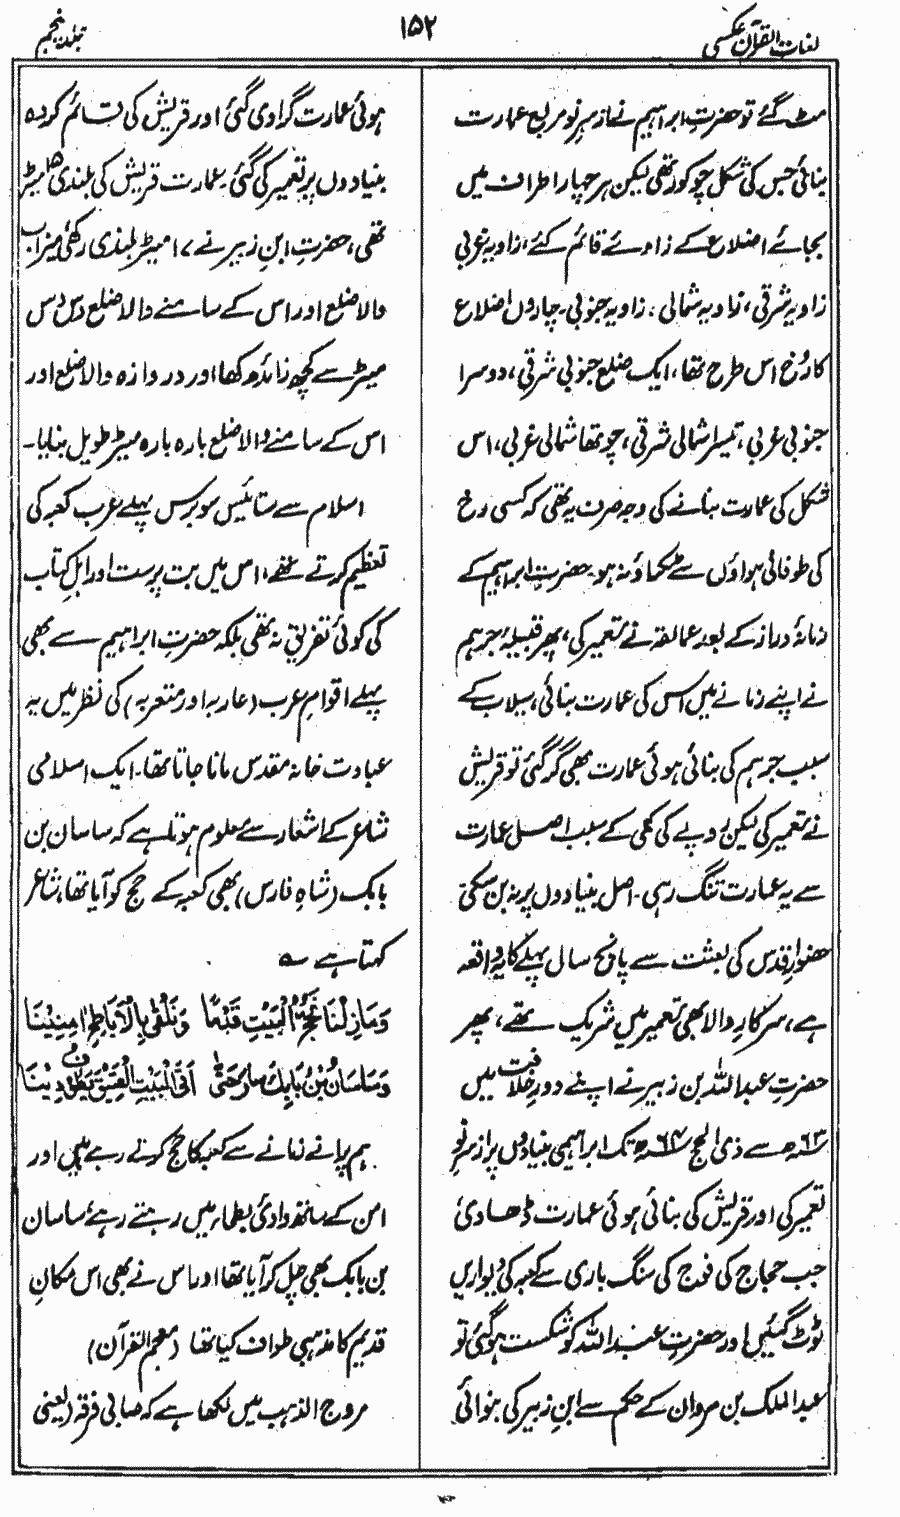 لغات القرآن عکسی
۱۵۲
جلد پنجم
مٹ گئے تو حضرتِ ابراہیم نے از سرِ نو مربع عمارت
بنائی جس کی شکل چوکور تھی لیکن ہر چہار اطراف میں
بجائے اضلاع کے زاوئے قائم کئے، زاویہ غربی
زاویہ شرقی، زاویہ شمالی۔ زاویہ جنوبی۔ چاروں اضلاع
کا رُخ اس طرح تھا، ایک ضلع جنوبی شرقی، دوسرا
جنوبی غربی، تیسرا شمالی شرقی، چوتھا شمالی غربی، اس
شکل کی عمارت بنانے کی وجہ صرف یہ تھی کہ کسی رخ
کی طوفانی ہواؤں سے ٹکراؤ نہ ہو۔ حضرتِ ابراہیم کے
زمانۂ دراز کے بعد عمالقہ نے تعمیر کی، پھر قبیلۂ جرہم
نے اپنے زمانے میں اس کی عمارت بنائی، سیلاب کے
سبب جرہم کی بنائی ہوئی عمارت بھی گر گئی تو قریش
نے تعمیر کی لیکن روپے کی کمی کے سبب اصل عمارت
سے یہ عمارت تنگ رہی۔ اصل بنیادوں پر نہ بن سکی
حضورِ اقدس کی بعثت سے پانچ سال پہلے کا یہ واقعہ
ہے، سرکارِ والا بھی تعمیر میں شریک تھے، پھر
حضرتِ عبداللہ بن زبیر نے اپنے دورِ خلافت میں
۶۳ھ سے ذی الحج ۶۴ھ تک ابراہیمی بنیادوں پر از سرِ نو
تعمیر کی اور قریش کی بنائی ہوئی عمارت ڈھادی
جب حجاج کی فوج کی سنگ باری سے کعبہ کی دیواریں
ٹوٹ گئیں اور حضرتِ عبداللہ کو شکست ہوگئی تو
عبدالملک بن مروان کے حکم سے ابنِ زبیر کی بنوائی
ہوئی عمارت گرادی گئی اور قریش کی قائم کردہ
بنیادوں پر تعمیر کی گئی۔ عمارت قریش کی بلندی ۱۵ میٹر
تھی، حضرتِ ابنِ زبیر نے ۱۷ میٹر بلندی رکھی میزاب
والا ضلع اور اس کے سامنے والا ضلع دس دس
میٹر سے کچھ زائد رکھا اور دروازہ والا ضلع اور
اس کے سامنے والا ضلع بارہ بارہ میٹر طویل بنایا۔
اسلام سے ستائیس سو برس پہلے عرب کعبہ کی
تعظیم کرتے تھے، اس میں بت پرست اور اہلِ کتاب
کی کوئی تفریق نہ تھی بلکہ حضرتِ ابراہیم سے بھی
پہلے اقوامِ عرب (عاربہ اور متعربہ) کی نظر میں یہ
عبادت خانہ مقدس مانا جاتا تھا۔ ایک اسلامی
شاعر کے اشعار سے معلوم ہوتا ہے کہ ساسان بن
بابک (شاہِ فارس) بھی کعبہ کے حج کو آیا تھا، شاعر
کہتا ہے ؎
وَمَا زِلْنَا نَحُجُّ الْبَيْتَ قَدْمًا وَنُلْقٰی بِالْاَبَاطِحِ اٰمِنِيْنَا
وَسَاسَانُ بْنُ بَابِكَ سَارَ حَتّٰی اَتَی الْبَيْتَ الْعَتِيْقَ يَطُوْفُ دِيْنَا
ہم پرانے زمانے سے کعبہ کا حج کرتے رہے ہیں اور
امن کے ساتھ وادیٔ بطحاء میں رہتے رہے، ساسان
بن بابک بھی چل کر آیا تھا اور اس نے بھی اس مکانِ
قدیم کا مذہبی طواف کیا تھا (معجم القرآن)
مروج الذہب میں لکھا ہے کہ صابی فرقہ (یعنی